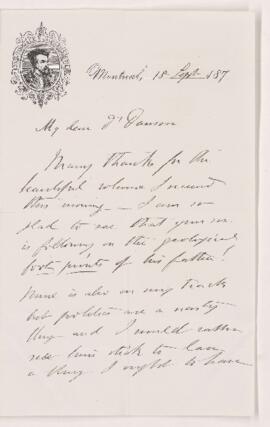 Montreal, 18 Sept 187
My dear Dr Dawson
Many thanks for the
beautiful volume I received
this morning – I am so
glad to see that your son
is following on the geological
foot prints of his father!
Mine is also on my track
but politics are a nasty
thing and I would rather
see him stick to law,
a thing I ought to have